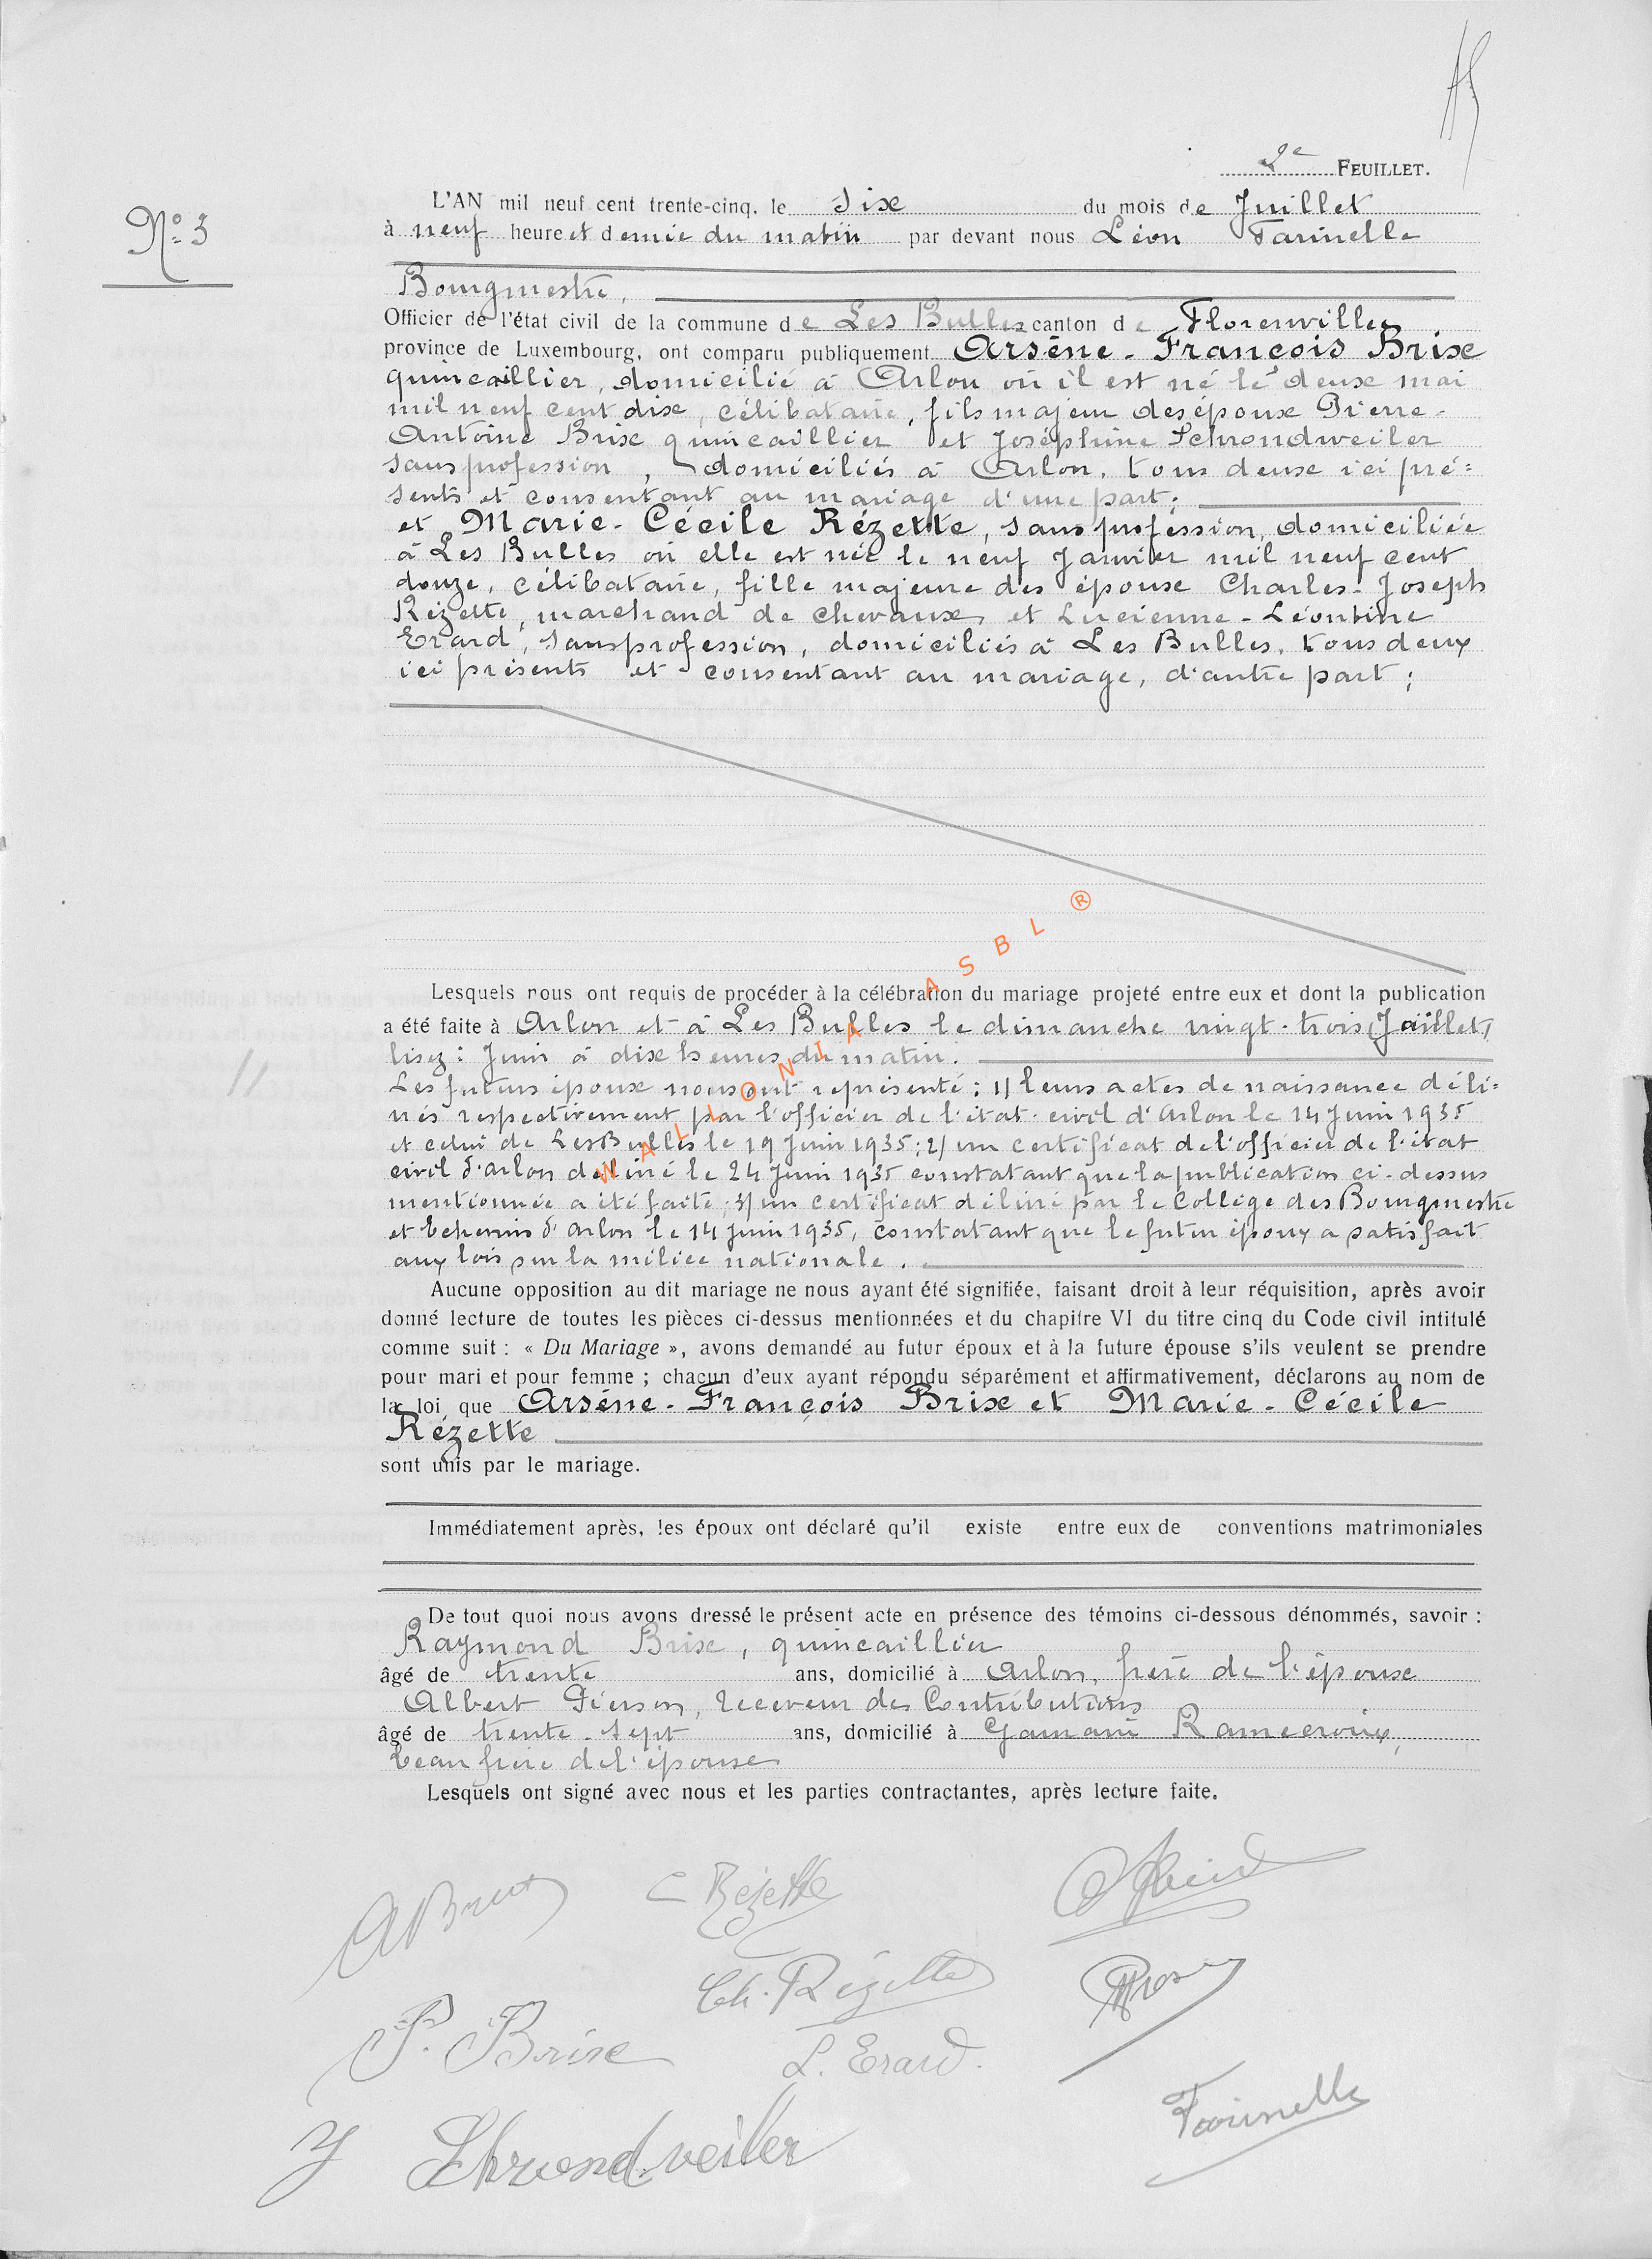 2e FEUILLET.
N° 3
L'AN mil neuf cent trente-cinq, le six du mois de Juillet
à neuf heure et demie du matin par devant nous Léon Farinelle
Bourgmestre,
Officier de l'état civil de la commune de Les Bulles canton de Florenville
province de Luxembourg, ont comparu publiquement Arsène-François Brix
quincaillier, domicilié à Arlon où il est né le deux mai
mil neuf cent dix, célibataire, fils majeur des époux Pierre-
Antoine Brix quincaillier et Joséphine Schrondweiler
sans profession, domiciliés à Arlon, tous deux ici pré=
sents et consentant au mariage d'une part;
et Marie-Cécile Rézette, sans profession, domiciliée
à Les Bulles où elle est née le neuf Janvier mil neuf cent
douze, célibataire, fille majeure des époux Charles-Joseph
Rézette, marchand de chevaux et Lucienne-Léontine
Erard, sans profession, domiciliés à Les Bulles, tous deux
ici présents et consentant au mariage, d'autre part;
Lesquels nous ont requis de procéder à la célébration du mariage projeté entre eux et dont la publication
a été faite à Arlon et à Les Bulles le dimanche vingt-trois (Juillet)
lisez: Juin à dix heures du matin.
Les futurs époux nous ont représenté: 1) leurs actes de naissance déli=
vrés respectivement par l'officier de l'état-civil d'Arlon le 14 Juin 1935
et celui de Les Bulles le 19 Juin 1935; 2) un certificat de l'officier de l'état
civil d'Arlon délivré le 24 Juin 1935 constatant que la publication ci-dessus
mentionnée a été faite; 3) un certificat délivré par le Collège des Bourgmestre
et Echevins d'Arlon le 14 Juin 1935, constatant que le futur époux a satisfait
aux lois sur la milice nationale.
Aucune opposition au dit mariage ne nous ayant été signifiée, faisant droit à leur réquisition, après avoir
donné lecture de toutes les pièces ci-dessus mentionnées et du chapitre VI du titre cinq du Code civil intitulé
comme suit : « Du Mariage », avons demandé au futur époux et à la future épouse s'ils veulent se prendre
pour mari et pour femme ; chacun d'eux ayant répondu séparément et affirmativement, déclarons au nom de
la loi que Arsène-François Brix et Marie-Cécile
Rézette
sont unis par le mariage.
Immédiatement après, les époux ont déclaré qu'il existe entre eux de conventions matrimoniales
De tout quoi nous avons dressé le présent acte en présence des témoins ci-dessous dénommés, savoir :
Raymond Brix, quincaillier
âgé de trente ans, domicilié à Arlon, frère de l'époux
Albert Pierson, receveur des Contributions
âgé de trente-sept ans, domicilié à Ramecroix,
beau frère de l'épouse
Lesquels ont signé avec nous et les parties contractantes, après lecture faite.
ABrix
C Rézette
Ch. Rézette
P. Brix
L. Erard.
Farinelle
J Schrondweiler
WALLONIA ASBL ®